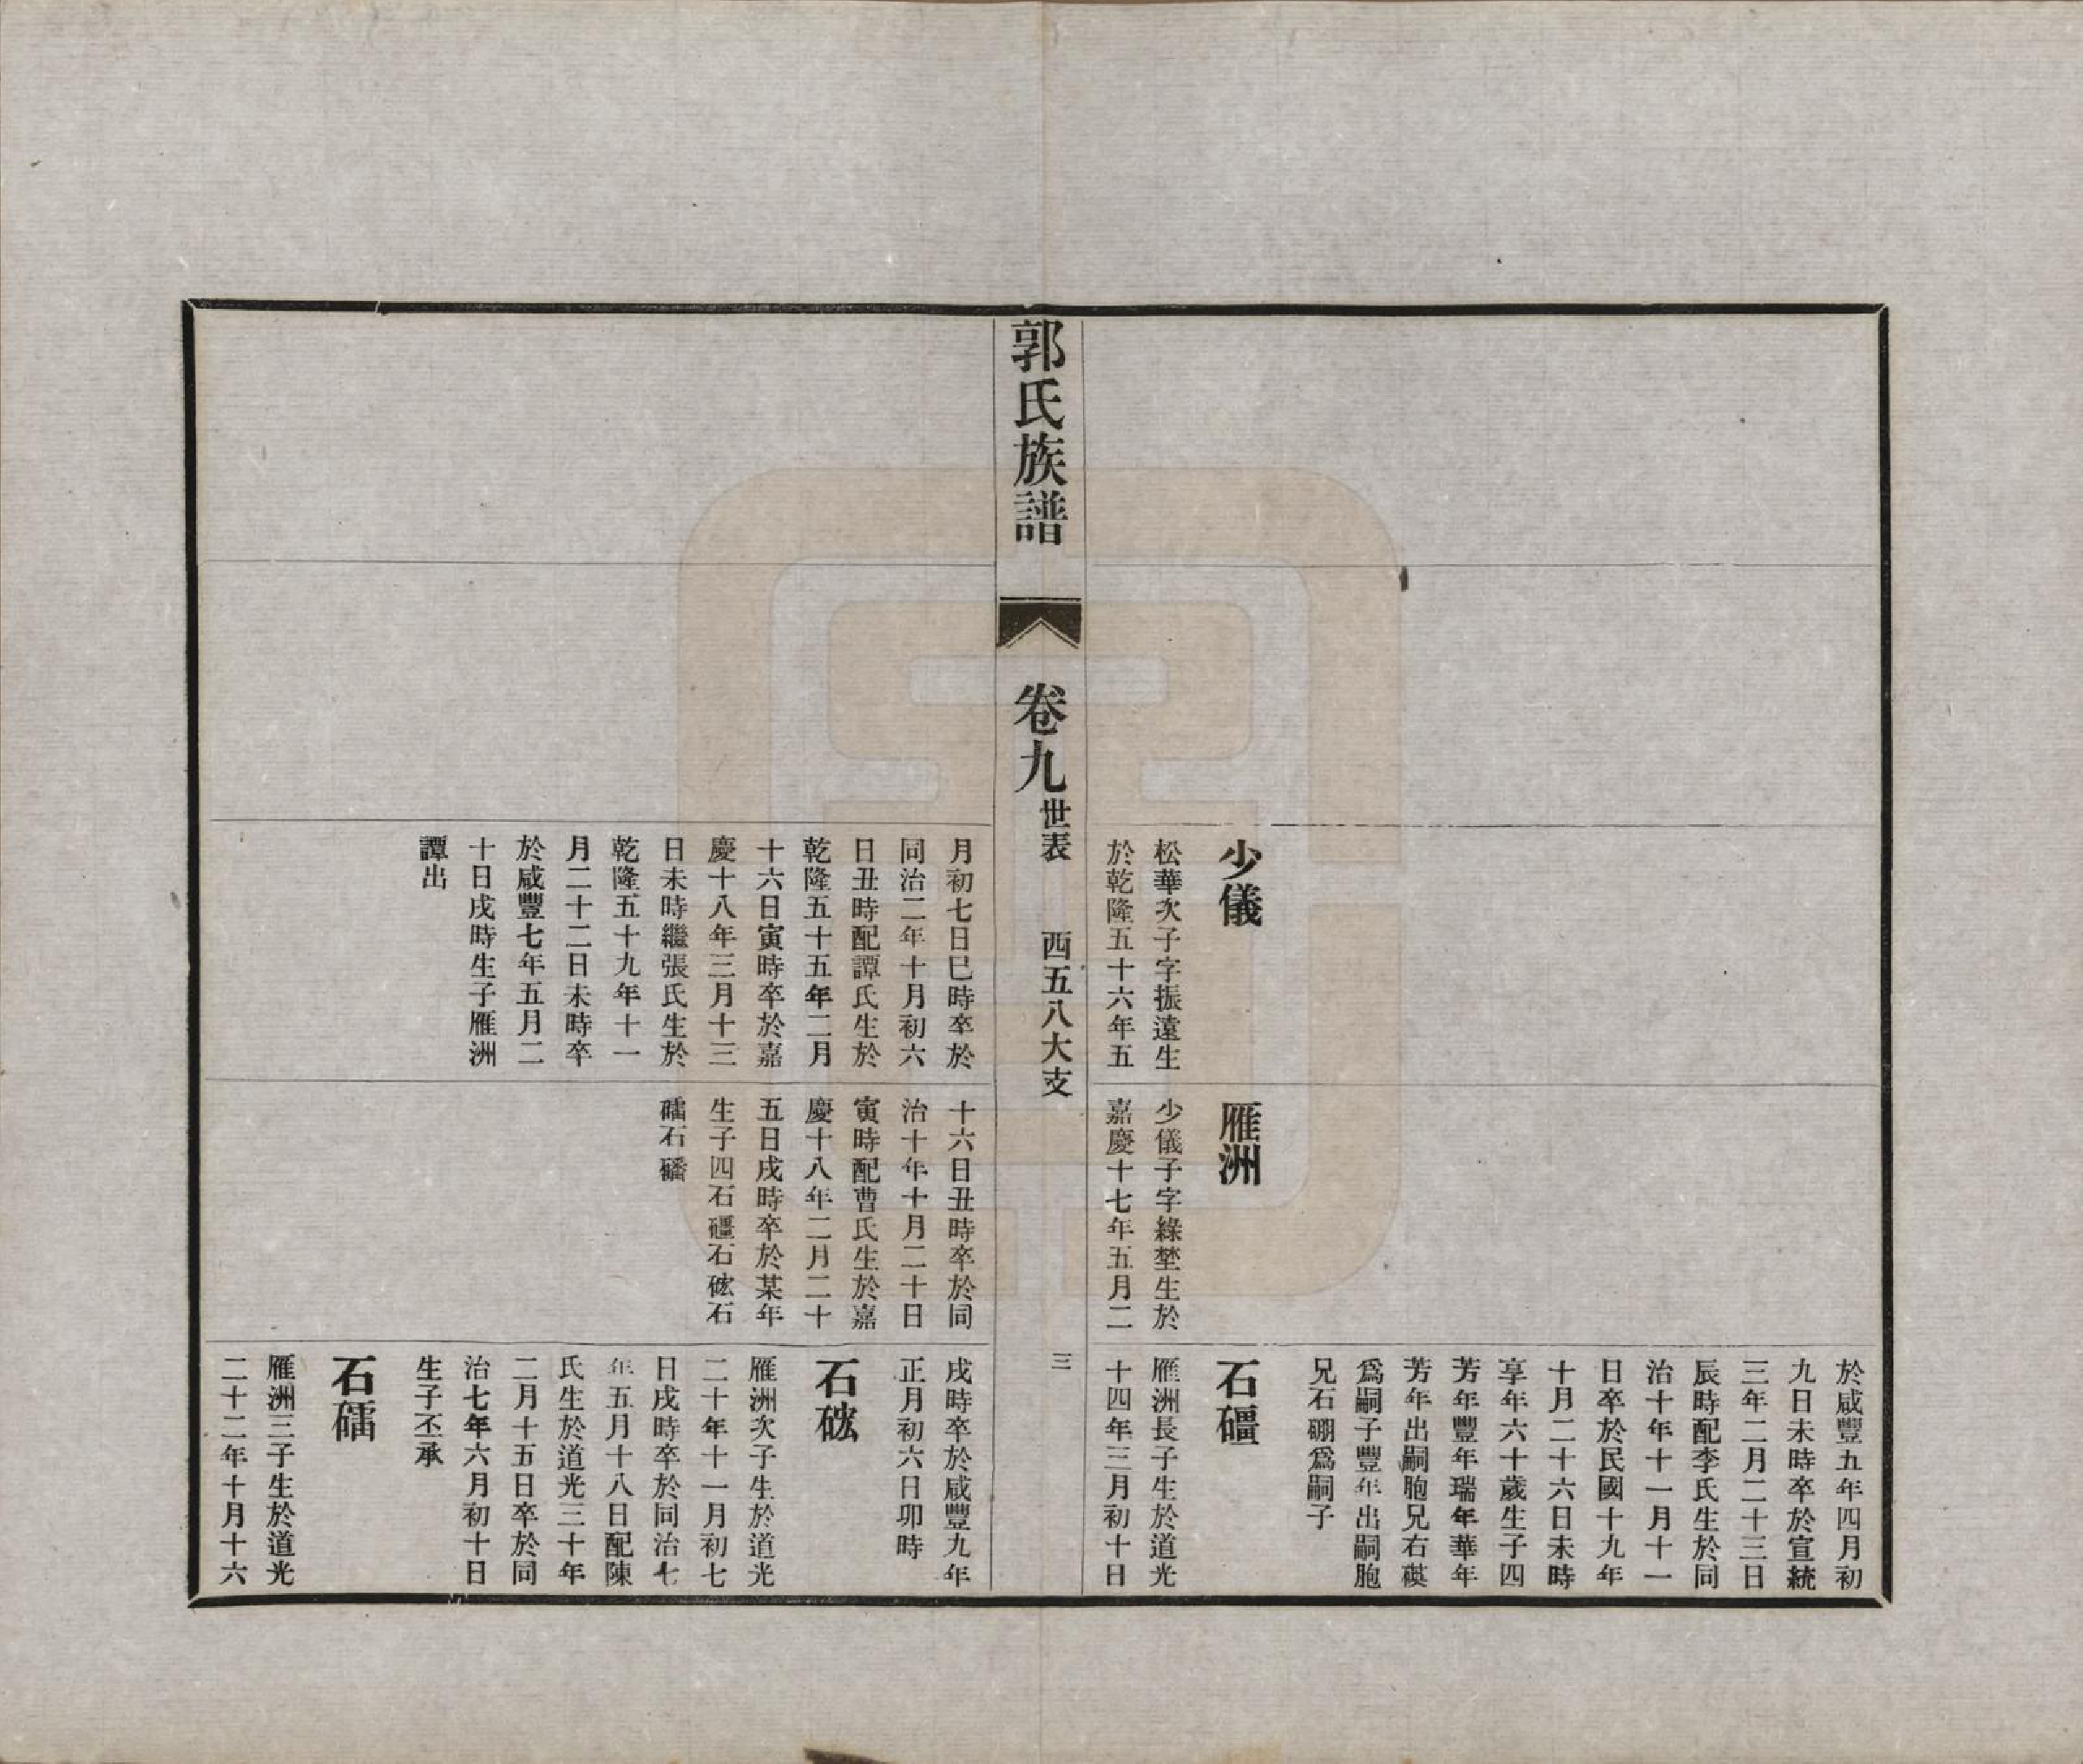 於咸豐五年四月初
九日未時卒於宣統
三年二月二十三日
辰時配李氏生於同
治十年十一月十一
日卒於民國十九年
十月二十六日未時
享年六十歲生子四
芳年豐年瑞年華年
芳年出嗣胞兄右磺
爲嗣子豐年出嗣胞
兄石硼爲嗣子
少儀
松華次子字振遠生
於乾隆五十六年五
雁洲
少儀子字綠埜生於
嘉慶十七年五月二
石礓
雁洲長子生於道光
十四年三月初十日
郭氏族譜
卷九
世表
西五八大支
三
月初七日巳時卒於
同治二年十月初六
日丑時配譚氏生於
乾隆五十五年二月
十六日寅時卒於嘉
慶十八年三月十三
日未時繼張氏生於
乾隆五十九年十一
月二十二日未時卒
於咸豐七年五月二
十日戌時生子雁洲
譚出
十六日丑時卒於同
治十年十月二十日
寅時配曹氏生於嘉
慶十八年二月二十
五日戌時卒於某年
生子四石礓石硡石
礌石磻
戌時卒於咸豐九年
正月初六日卯時
石硡
雁洲次子生於道光
二十年十一月初七
日戌時卒於同治七
年五月十八日配陳
氏生於道光三十年
二月十五日卒於同
治七年六月初十日
生子丕承
石礌
雁洲三子生於道光
二十二年十月十六